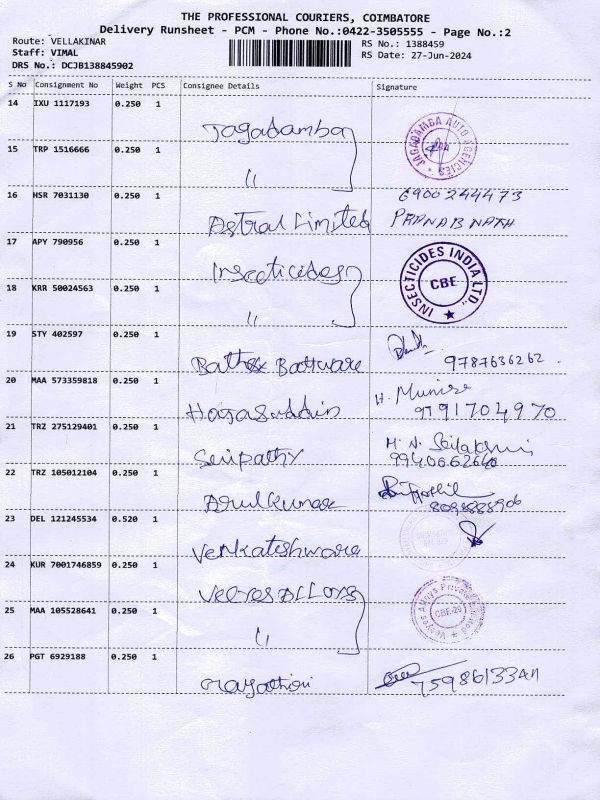 THE PROFESSIONAL COURIERS, COIMBATORE
Delivery Runsheet - PCM - Phone No.:0422-3505555 - Page No.:2
Route: VELLAKINAR
RS No.: 1388459
Staff: VIMAL
RS Date: 27-Jun-2024
DRS No.: DCJB138845902
S No Consignment No Weight PCS Consignee Details Signature
14 IXU 1117193 0.250 1 Jagadamba
JAGADAMBA AUTO AGENCIES
15 TRP 1516666 0.250 1 "
16 HSR 7031130 0.250 1 Astral Limited 6900244473
PRANAB NATH
17 APY 790956 0.250 1 Insecticides
INSECTICIDES INDIA LTD., CBE
18 KRR 50024563 0.250 1 "
19 STY 402597 0.250 1 9787636262
20 MAA 573359818 0.250 1 H. 9791704970
21 TRZ 275129401 0.250 1 M. N. 9940662640
22 TRZ 105012104 0.250 1 Arulkumar
23 DEL 121245534 0.520 1 Venkateshwara
24 KUR 7001746859 0.250 1
CBE-29
25 MAA 105528641 0.250 1 "
26 PGT 6929188 0.250 1